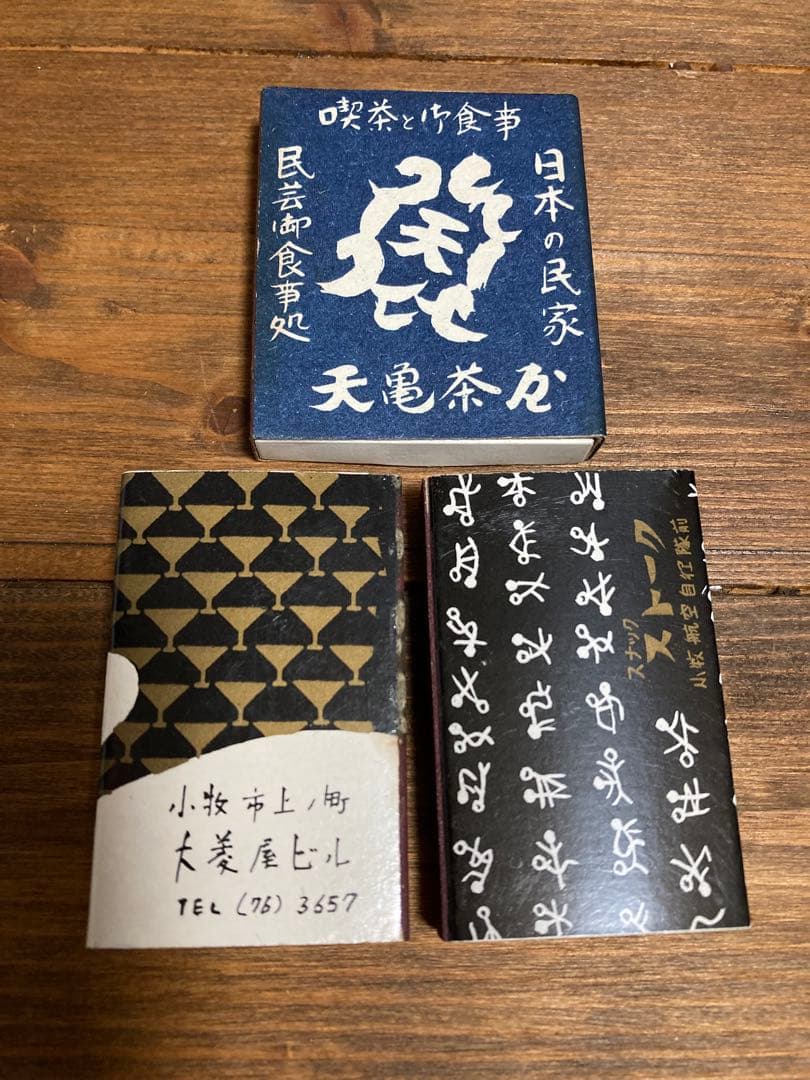 喫茶と御食事
日本の民家
民芸御食事処
天亀茶屋
小牧市上ノ町
大菱屋ビル
TEL (76) 3657
スナック
ストーク
小牧航空自衛隊前